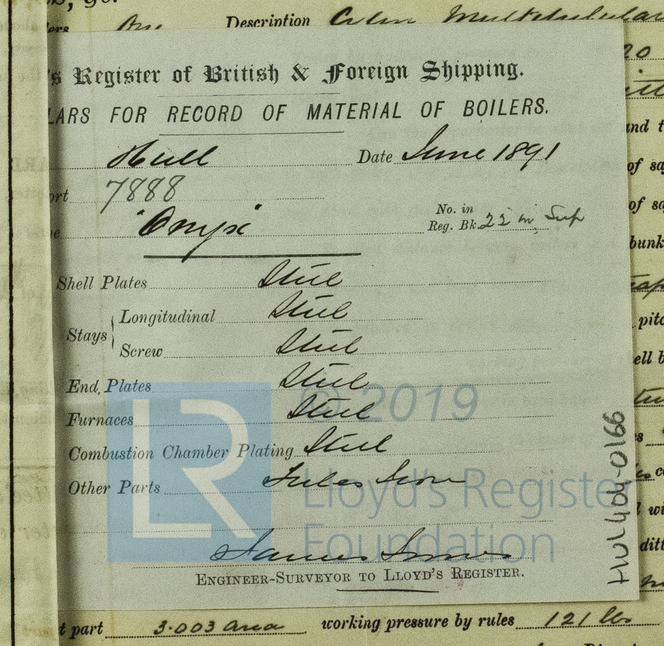 Description
's Register of British & Foreign Shipping.
LARS FOR RECORD OF MATERIAL OF BOILERS.
Hull Date June 1891
ort 7888
e "Onyx" No. in Reg. Bk. 22 in Sup
Shell Plates Steel
Stays Longitudinal Steel
Screw Steel
End Plates Steel
Furnaces Steel
Combustion Chamber Plating Steel
Other Parts Tubes Iron
James
ENGINEER-SURVEYOR TO LLOYD'S REGISTER.
t part 3.003 area working pressure by rules 121 lbs
HUL404-0166
LR
© 2019
Lloyd's Register
Foundation
nd t
of sa
of sa
bunk
pitc
ell b